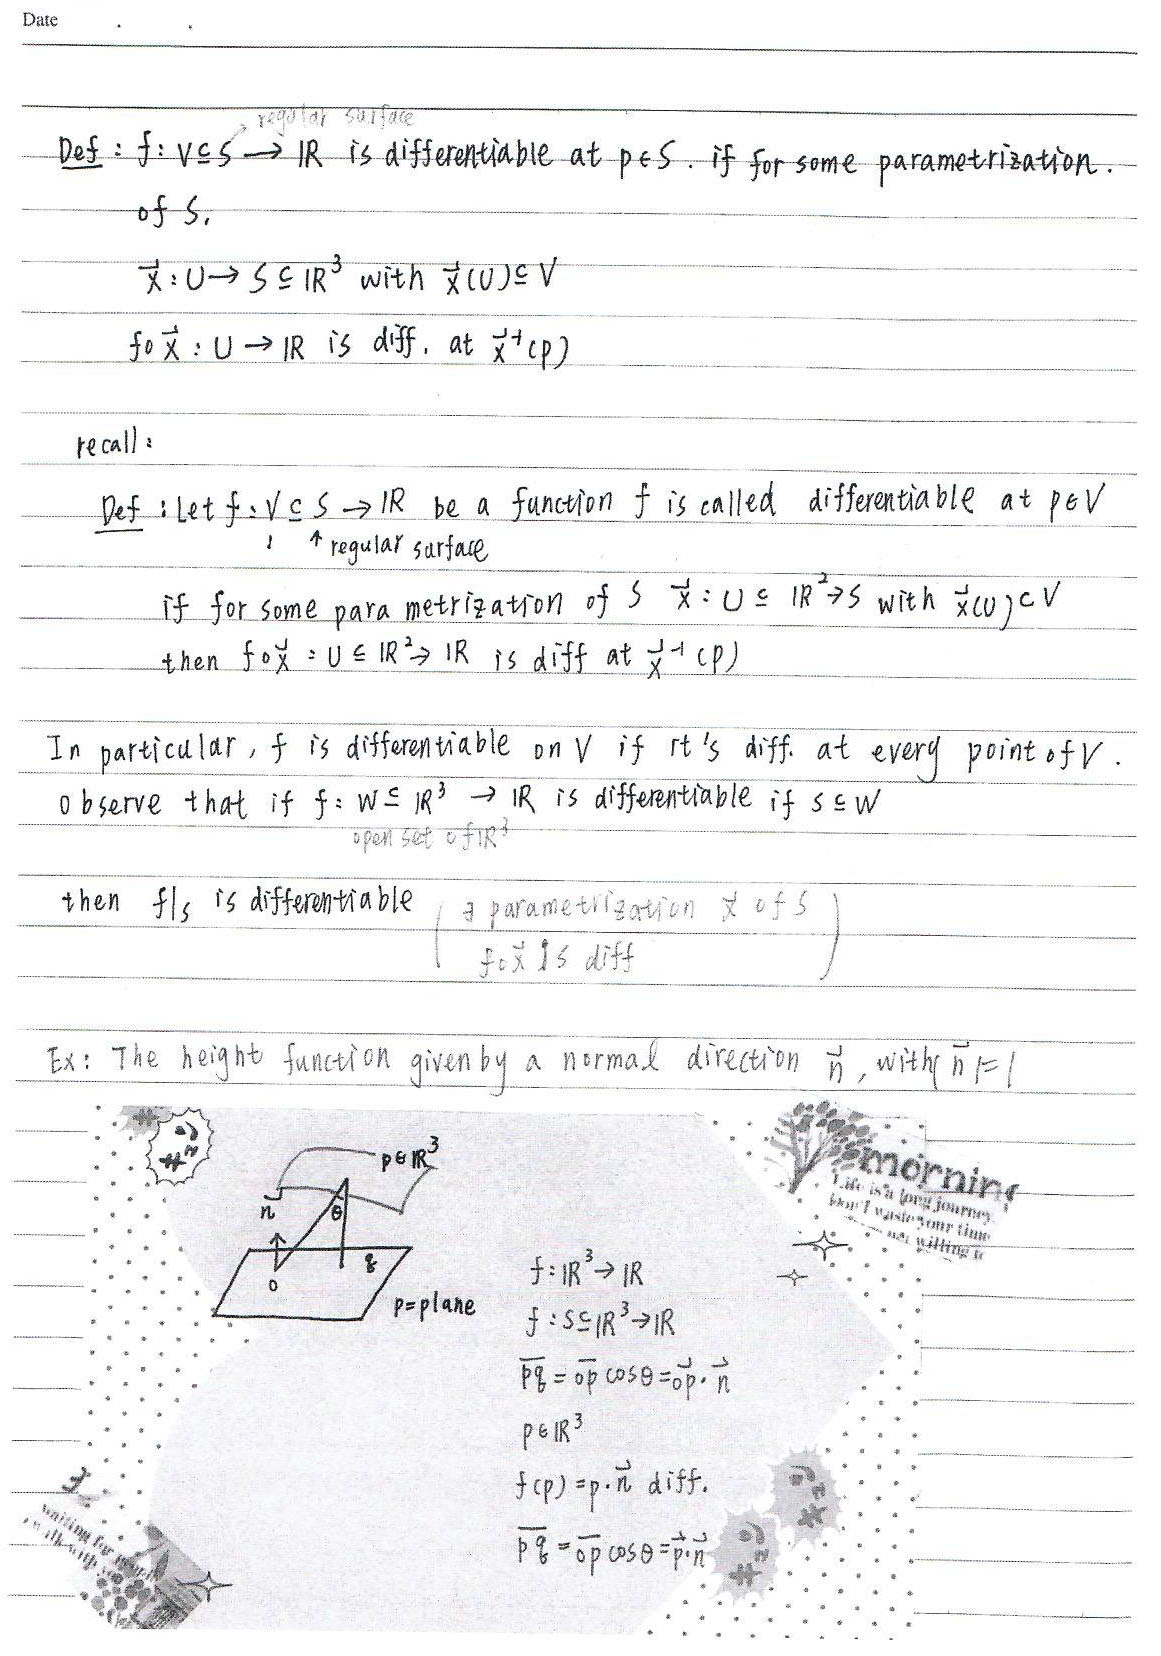 Date . .
regular surface
Def : f : V ⊆ S → ℝ is differentiable at p ∈ S . if for some parametrization .
of S.
x⃗ : U → S ⊆ ℝ³ with x⃗(U) ⊆ V
f∘x⃗ : U → ℝ is diff. at x⃗⁻¹(p)
recall :
Def : Let f : V ⊆ S → ℝ be a function f is called differentiable at p ∈ V
↑ regular surface
if for some parametrization of S x⃗ : U ⊆ ℝ² → S with x⃗(U) ⊂ V
then f∘x⃗ : U ⊆ ℝ² → ℝ is diff at x⃗⁻¹(p)
In particular, f is differentiable on V if it's diff. at every point of V.
observe that if f : W ⊆ ℝ³ → ℝ is differentiable if S ⊆ W
open set of ℝ³
then f|s is differentiable ( ∃ parametrization x⃗ of S
f∘x⃗ is diff )
Ex: The height function given by a normal direction n⃗, with |n⃗|=1
p ∈ ℝ³
n⃗
θ
q
o
p=plane
f : ℝ³ → ℝ
f : S ⊆ ℝ³ → ℝ
p̅q̅ = o̅p̅ cosθ = op⃗ · n⃗
p ∈ ℝ³
f(p) = p · n⃗ diff.
p̅q̅ = o̅p̅ cosθ = p⃗ · n⃗
morning
Life is a long journey
Don't waste your time
waiting for